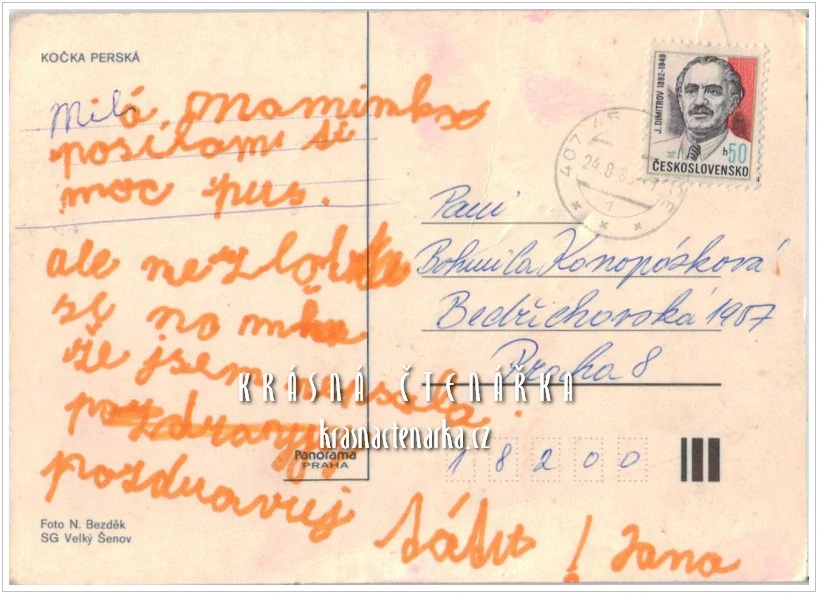 KOČKA PERSKÁ
Milá Maminko
posílám ti
moc pus.
ale nezlob
se na mně
že jsem nepsala.
pozdravuj
pozdravuj tátu! Jana
Foto N. Bezděk
SG Velký Šenov
Panorama
PRAHA
J. DIMITROV 1882-1949
h50
ČESKOSLOVENSKO
407
24.8.8
1
Paní
Bohmila Konopásková
Bedřichovská 1967
Praha 8
18200
KRÁSNÁ ČTENÁŘKA
krasnactenarka.cz